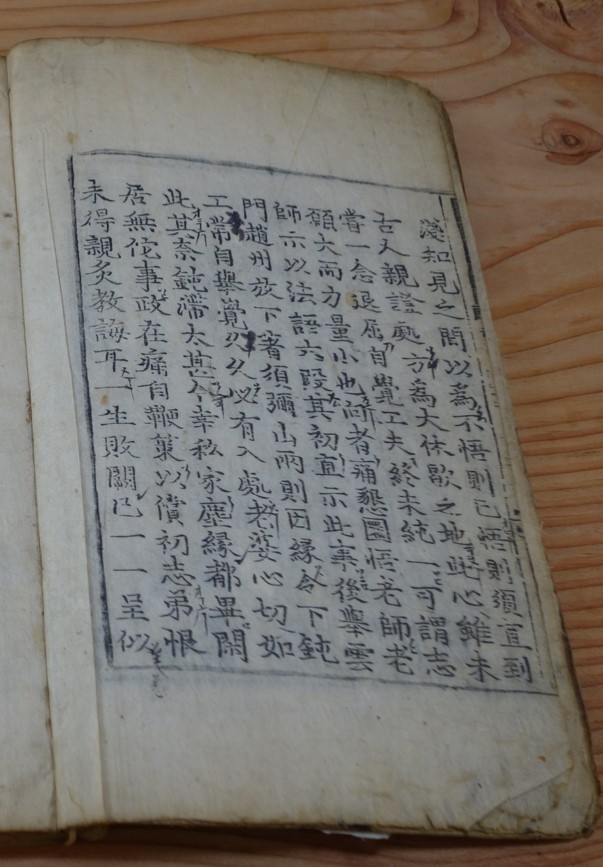 淺知見之間以為不悟則已悟則須直到
古人親證處方為大休歇之地此心雖未
嘗一念退屈自覺工夫終未純一可謂志
願大而力量小也向者痛懇圜悟老師老
師示以法語六段其初直示此事後舉雲
門趙州放下著須彌山兩則因緣令下鈍
工常自舉覺久久必有入處老婆心切如
此其奈鈍滯太甚今幸私家塵緣都畢閑
居無佗事政在痛自鞭策以償初志弟恨
未得親炙教誨耳一生敗闕已一一呈似